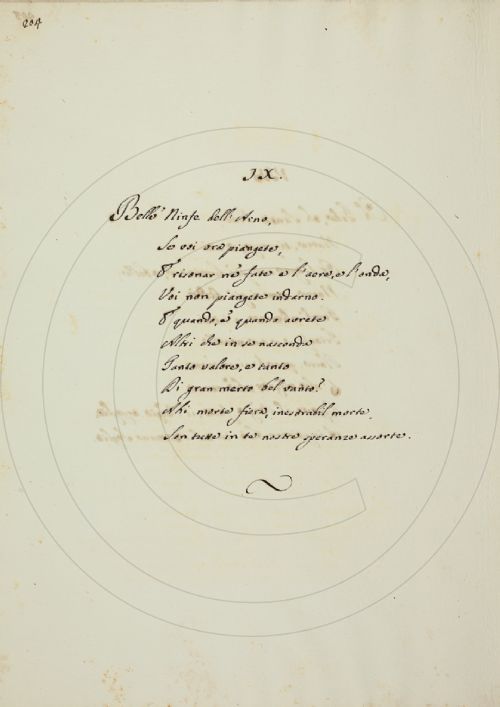 204
IX.
Belle Ninfe dell' Arno,
Se voi ora piangete,
E risonar ne fate e l'aere, e l'onda,
Voi non piangete indarno.
E quando, e quando avrete
Altri che in se nasconda
Tanto valore, e tanto
Di gran merto bel vanto?
Ahi morte fiera, inesorabil morte,
Son tutte in te nostre speranze assorte.